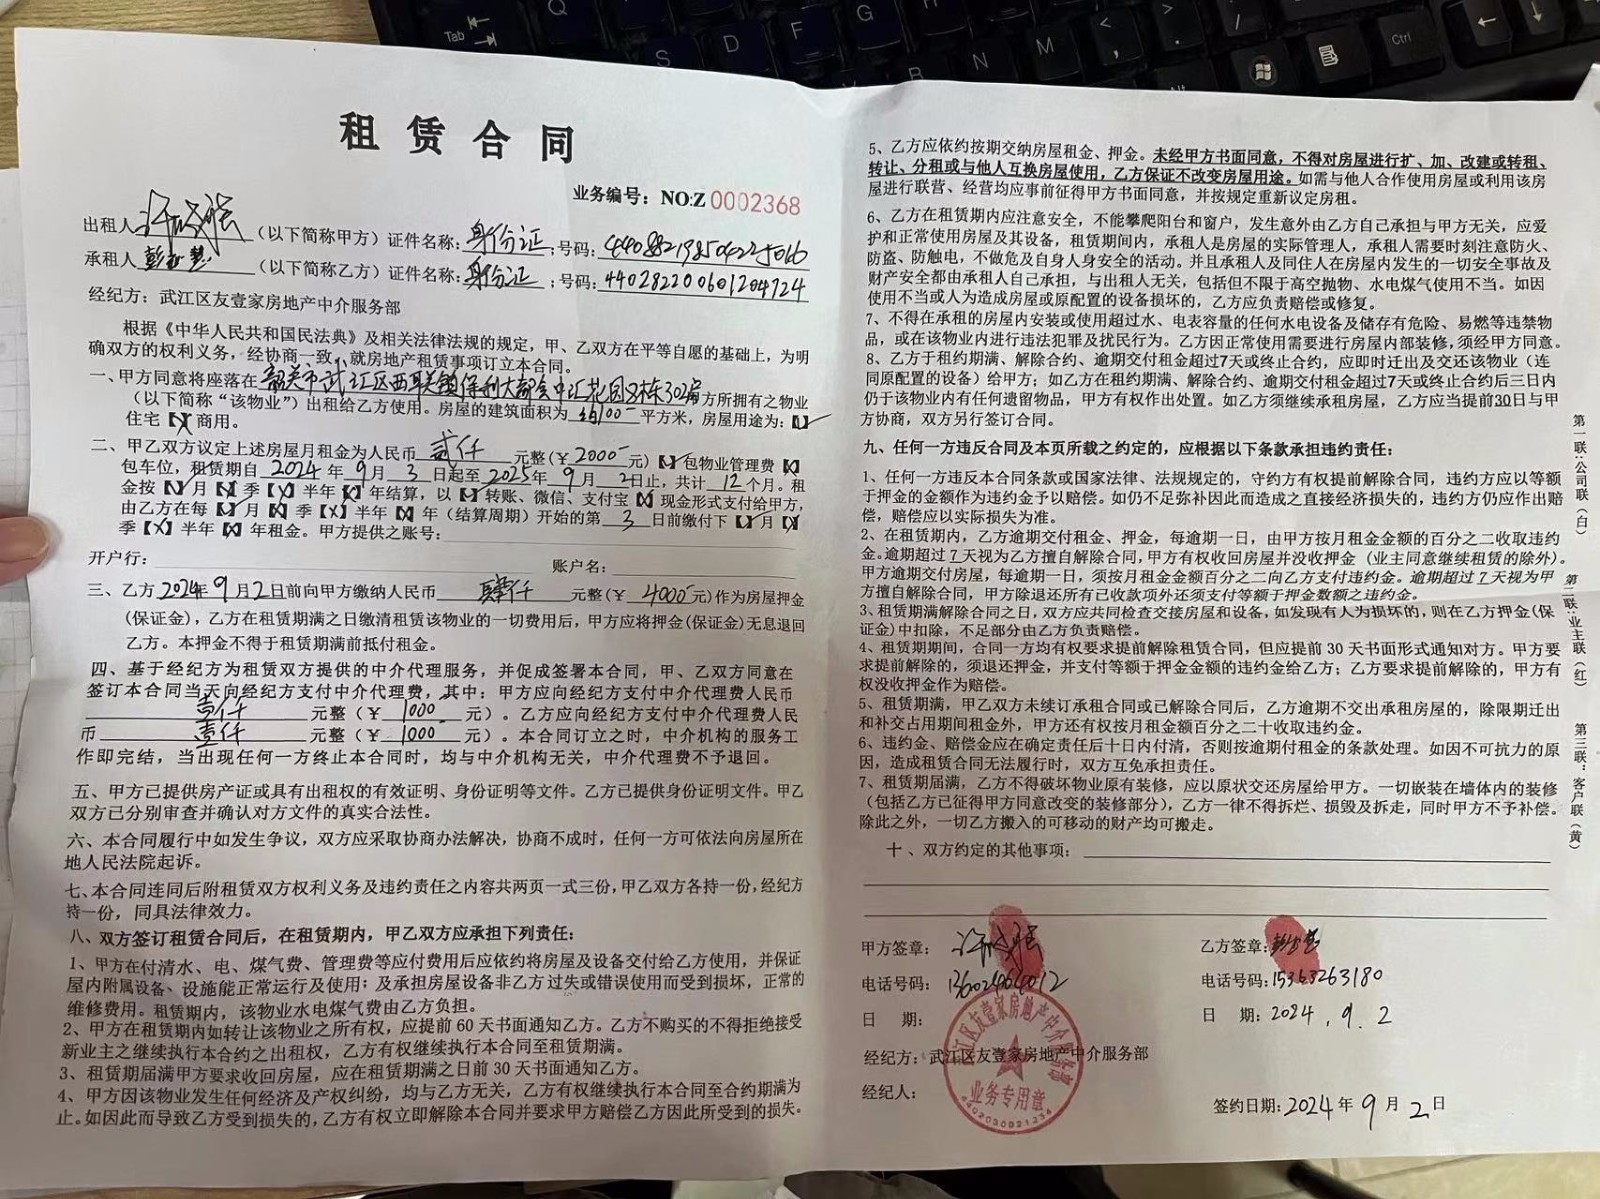 租赁合同
业务编号：NO:Z 0002368
出租人（以下简称甲方）证件名称：身份证；号码：
承租人（以下简称乙方）证件名称：身份证；号码：440282200601204724
经纪方：武江区友壹家房地产中介服务部
根据《中华人民共和国民法典》及相关法律法规的规定，甲、乙双方在平等自愿的基础上，为明
确双方的权利义务，经协商一致，就房地产租赁事项订立本合同。
一、甲方同意将座落在韶关市武江区西联镇保利大都会中汇花园8栋302房方所拥有之物业
（以下简称“该物业”）出租给乙方使用。房屋的建筑面积为100平方米，房屋用途为：【√】
住宅【×】商用。
二、甲乙双方议定上述房屋月租金为人民币贰仟元整（￥2000元）【√】包物业管理费【×】
包车位，租赁期自2024年9月3日起至2025年9月2日止，共计12个月。租
金按【√】月【×】季【×】半年【×】年结算，以【√】转账、微信、支付宝【×】现金形式支付给甲方，
由乙方在每【√】月【×】季【×】半年【×】年（结算周期）开始的第3日前缴付下【√】月【×】
季【×】半年【×】年租金。甲方提供之账号：
开户行： 账户名：
三、乙方2024年9月2日前向甲方缴纳人民币肆仟元整（￥4000元）作为房屋押金
（保证金），乙方在租赁期满之日缴清租赁该物业的一切费用后，甲方应将押金（保证金）无息退回
乙方。本押金不得于租赁期满前抵付租金。
四、基于经纪方为租赁双方提供的中介代理服务，并促成签署本合同，甲、乙双方同意在
签订本合同当天向经纪方支付中介代理费，其中：甲方应向经纪方支付中介代理费人民币
壹仟元整（￥1000元）。乙方应向经纪方支付中介代理费人民
币壹仟元整（￥1000元）。本合同订立之时，中介机构的服务工
作即完结，当出现任何一方终止本合同时，均与中介机构无关，中介代理费不予退回。
五、甲方已提供房产证或具有出租权的有效证明、身份证明等文件。乙方已提供身份证明文件。甲乙
双方已分别审查并确认对方文件的真实合法性。
六、本合同履行中如发生争议，双方应采取协商办法解决，协商不成时，任何一方可依法向房屋所在
地人民法院起诉。
七、本合同连同后附租赁双方权利义务及违约责任之内容共两页一式三份，甲乙双方各持一份，经纪方
持一份，同具法律效力。
八、双方签订租赁合同后，在租赁期内，甲乙双方应承担下列责任：
1、甲方在付清水、电、煤气费、管理费等应付费用后应依约将房屋及设备交付给乙方使用，并保证
屋内附属设备、设施能正常运行及使用；及承担房屋设备非乙方过失或错误使用而受到损坏，正常的
维修费用。租赁期内，该物业水电煤气费由乙方负担。
2、甲方在租赁期内如转让该物业之所有权，应提前60天书面通知乙方。乙方不购买的不得拒绝接受
新业主之继续执行本合约之出租权，乙方有权继续执行本合同至租赁期满。
3、租赁期届满甲方要求收回房屋，应在租赁期满之日前30天书面通知乙方。
4、甲方因该物业发生任何经济及产权纠纷，均与乙方无关，乙方有权继续执行本合同至合约期满为
止。如因此而导致乙方受到损失的，乙方有权立即解除本合同并要求甲方赔偿乙方因此所受到的损失。
5、乙方应依约按期交纳房屋租金、押金。未经甲方书面同意，不得对房屋进行扩、加、改建或转租、
转让、分租或与他人互换房屋使用，乙方保证不改变房屋用途。如需与他人合作使用房屋或利用该房
屋进行联营、经营均应事前征得甲方书面同意，并按规定重新议定房租。
6、乙方在租赁期内应注意安全，不能攀爬阳台和窗户，发生意外由乙方自己承担与甲方无关，应爱
护和正常使用房屋及其设备，租赁期间内，承租人是房屋的实际管理人，承租人需要时刻注意防火、
防盗、防触电，不做危及自身人身安全的活动。并且承租人及同住人在房屋内发生的一切安全事故及
财产安全都由承租人自己承担，与出租人无关，包括但不限于高空抛物、水电煤气使用不当。如因
使用不当或人为造成房屋或原配置的设备损坏的，乙方应负责赔偿或修复。
7、不得在承租的房屋内安装或使用超过水、电表容量的任何水电设备及储存有危险、易燃等违禁物
品，或在该物业内进行违法犯罪及扰民行为。乙方因正常使用需要进行房屋内部装修，须经甲方同意。
8、乙方于租约期满、解除合约、逾期交付租金超过7天或终止合约，应即时迁出及交还该物业（连
同原配置的设备）给甲方；如乙方在租约期满、解除合约、逾期交付租金超过7天或终止合约后三日内
仍于该物业内有任何遗留物品，甲方有权作出处置。如乙方须继续承租房屋，乙方应当提前30日与甲
方协商，双方另行签订合同。
九、任何一方违反合同及本页所载之约定的，应根据以下条款承担违约责任：
1、任何一方违反本合同条款或国家法律、法规规定的，守约方有权提前解除合同，违约方应以等额
于押金的金额作为违约金予以赔偿。如仍不足弥补因此而造成之直接经济损失的，违约方仍应作出赔
偿，赔偿应以实际损失为准。
2、在租赁期内，乙方逾期交付租金、押金，每逾期一日，由甲方按月租金金额的百分之二收取违约
金。逾期超过7天视为乙方擅自解除合同，甲方有权收回房屋并没收押金（业主同意继续租赁的除外）。
甲方逾期交付房屋，每逾期一日，须按月租金金额百分之二向乙方支付违约金。逾期超过7天视为甲
方擅自解除合同，甲方除退还所有已收款项外还须支付等额于押金数额之违约金。
3、租赁期满解除合同之日，双方应共同检查交接房屋和设备，如发现有人为损坏的，则在乙方押金（保
证金）中扣除，不足部分由乙方负责赔偿。
4、租赁期期间，合同一方均有权要求提前解除租赁合同，但应提前30天书面形式通知对方。甲方要
求提前解除的，须退还押金，并支付等额于押金金额的违约金给乙方；乙方要求提前解除的，甲方有
权没收押金作为赔偿。
5、租赁期满，甲乙双方未续订承租合同或已解除合同后，乙方逾期不交出承租房屋的，除限期迁出
和补交占用期间租金外，甲方还有权按月租金额百分之二十收取违约金。
6、违约金、赔偿金应在确定责任后十日内付清，否则按逾期付租金的条款处理。如因不可抗力的原
因，造成租赁合同无法履行时，双方互免承担责任。
7、租赁期届满，乙方不得破坏物业原有装修，应以原状交还房屋给甲方。一切嵌装在墙体内的装修
（包括乙方已征得甲方同意改变的装修部分），乙方一律不得拆烂、损毁及拆走，同时甲方不予补偿。
除此之外，一切乙方搬入的可移动的财产均可搬走。
十、双方约定的其他事项：
甲方签章： 乙方签章：
电话号码：13602464012 电话号码：15363263180
日 期： 日 期：2024.9.2
经纪方：武江区友壹家房地产中介服务部
经纪人：
签约日期：2024年9月2日
武江区友壹家房地产中介服务部
业务专用章
第一联：公司联（白）
第二联：业主联（红）
第三联：客户联（黄）